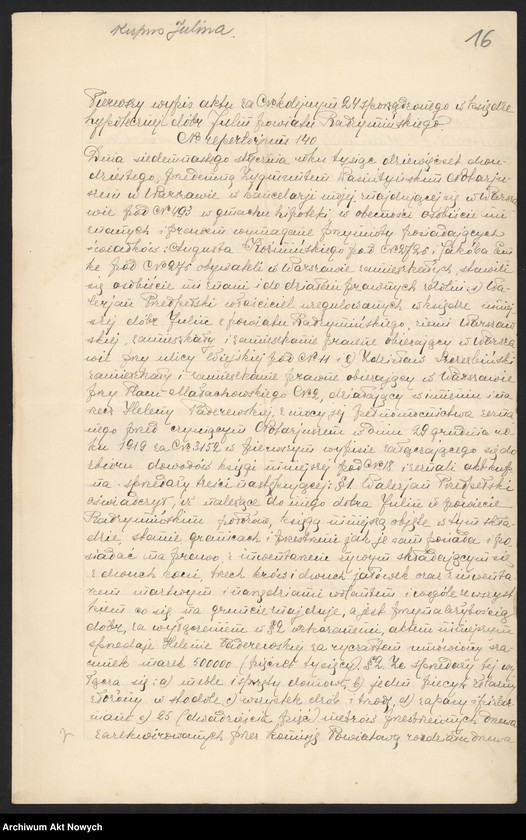 Kupno Julina.
16
Pierwszy wypis aktu za № kolejnym 24 sporządzonego w księdze
hypotecznej dóbr Julin powiatu Radzymińskiego
№ repertorjum 140
Dnia siedemnastego stycznia roku tysiąc dziewięćset dwu-
dziestego, przedemną Zygmuntem Wasiutyńskim Notarju-
szem w Warszawie w kancelarji mojej znajdującej się w Warsza-
wie pod № 493 w gmachu hipoteki w obecności osobiście mi
znanych i prawem wymagane przymioty posiadających
świadków: Augusta Koźmińskiego pod № 2725 i Jakóba
pod № 275 obywateli w Warszawie zamieszkałych, stawili
się osobiście mi znani i do działań prawnych zdolni: 1) Wa-
lerjan Przedpełski właściciel uregulowanych w księdze niniej-
szej dóbr Julin z powiatu Radzymińskiego, ziemi Warszaw-
skiej, zamieszkały i zamieszkanie prawne obierający w Warsza-
wie przy ulicy Wiejskiej pod № 11 i 2)
zamieszkały i zamieszkanie prawne obierający w Warszawie
przy Placu Małachowskiego № 2, działający w imieniu i na
rzecz Heleny Paderewskiej, z mocy jej pełnomocnictwa zezna-
nego przed czyniącym Notarjuszem w dniu 29 grudnia ro-
ku 1919 za № 3152 w pierwszym wypisie załączającego się do
zbioru dowodów księgi niniejszej pod № 18 i zeznali akt kup-
na - sprzedaży treści następującej: § 1 Walerjan Przedpełski
oświadczył, iż należące do niego dobra Julin w powiecie
Radzymińskim położone, księgą niniejszą objęte w tym skła-
dzie, stanie granicach i przestrzeni jak je sam posiada i po-
siadać ma prawo, z inwentarzem żywym składającym się
z dwóch koni, trzech krów i dwóch jałówek oraz z inwenta-
rzem martwym i narzędziami rolniczemi i wogóle ze wszyst-
kiem co się na gruncie znajduje, a jest przynależytością
dóbr, za wyłączeniem w § 2 wskazanem, aktem niniejszym
sprzedaje Helenie Paderewskiej za ryczałtem umówiony sza-
cunek marek 500000 (pięćset tysięcy). § 2. Ze sprzedaży tej wy-
łącza się: a) meble i sprzęty domowe, b) jeden piecyk żelazny
złożony w stodole, c) wszystek drób i trzodę, d) zapasy spiżar-
niane, e) 25 (dwadzieścia pięć) metrów przestrzennych drzewa
zarekwirowanych przez Komisję Powiatową rozdziału drzewa
Archiwum Akt Nowych